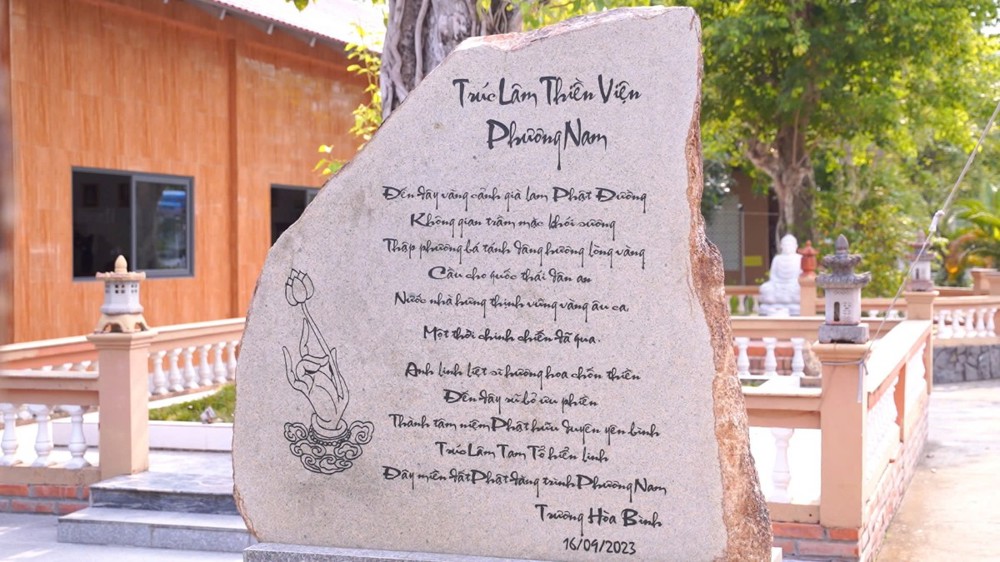 Trúc Lâm Thiền Viện
Phương Nam
Đến đây vãng cảnh già lam Phật Đường
Không gian trầm mặc khói sương
Thập phương bá tánh dâng hương lòng vàng
Cầu cho quốc thái dân an
Nước nhà hưng thịnh vững vàng âu ca
Một thời chinh chiến đã qua.
Anh linh liệt sĩ hương hoa chốn thiền
Đến đây xả bỏ ưu phiền
Thành tâm niệm Phật hữu duyên yên bình
Trúc Lâm Tam Tổ hiển linh
Đây miền đất Phật đăng trình Phương Nam
Trương Hòa Bình
16/09/2023